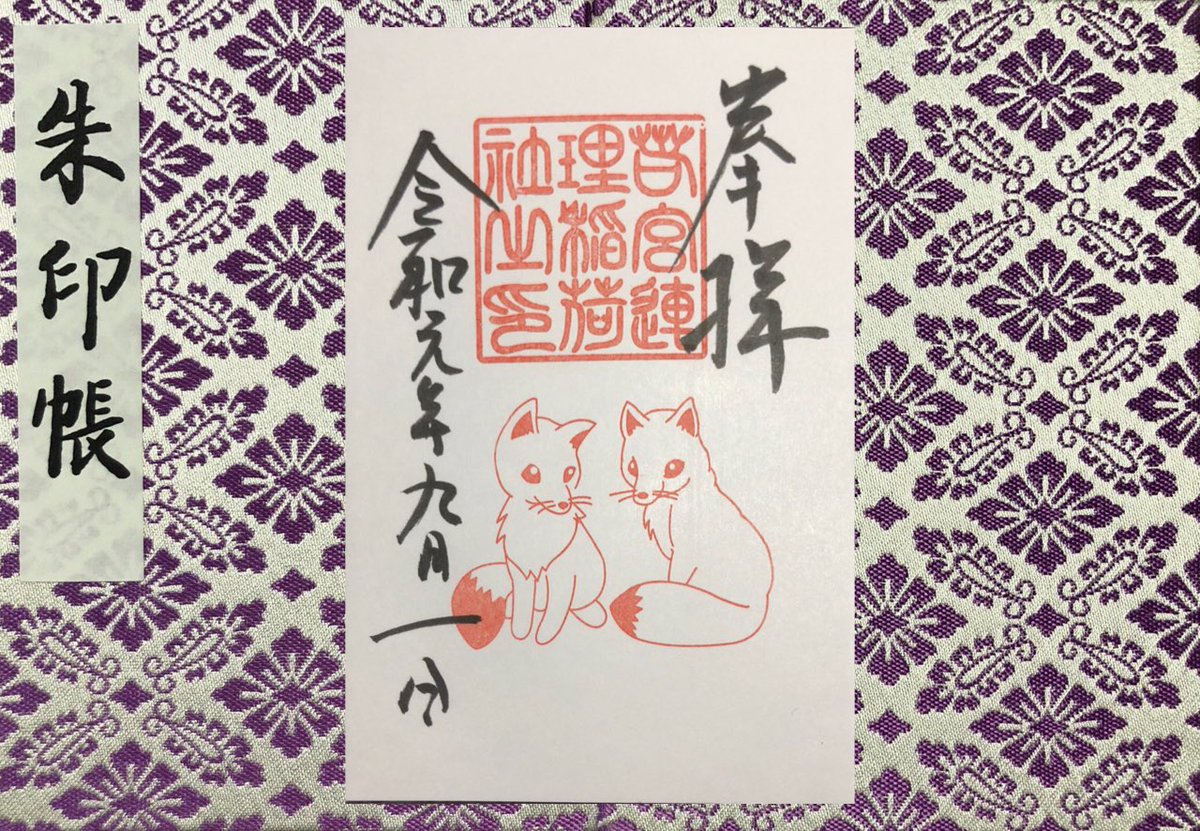 奉拝
若宮連
理稲荷
社之印
令和元年九月一日
朱印帳